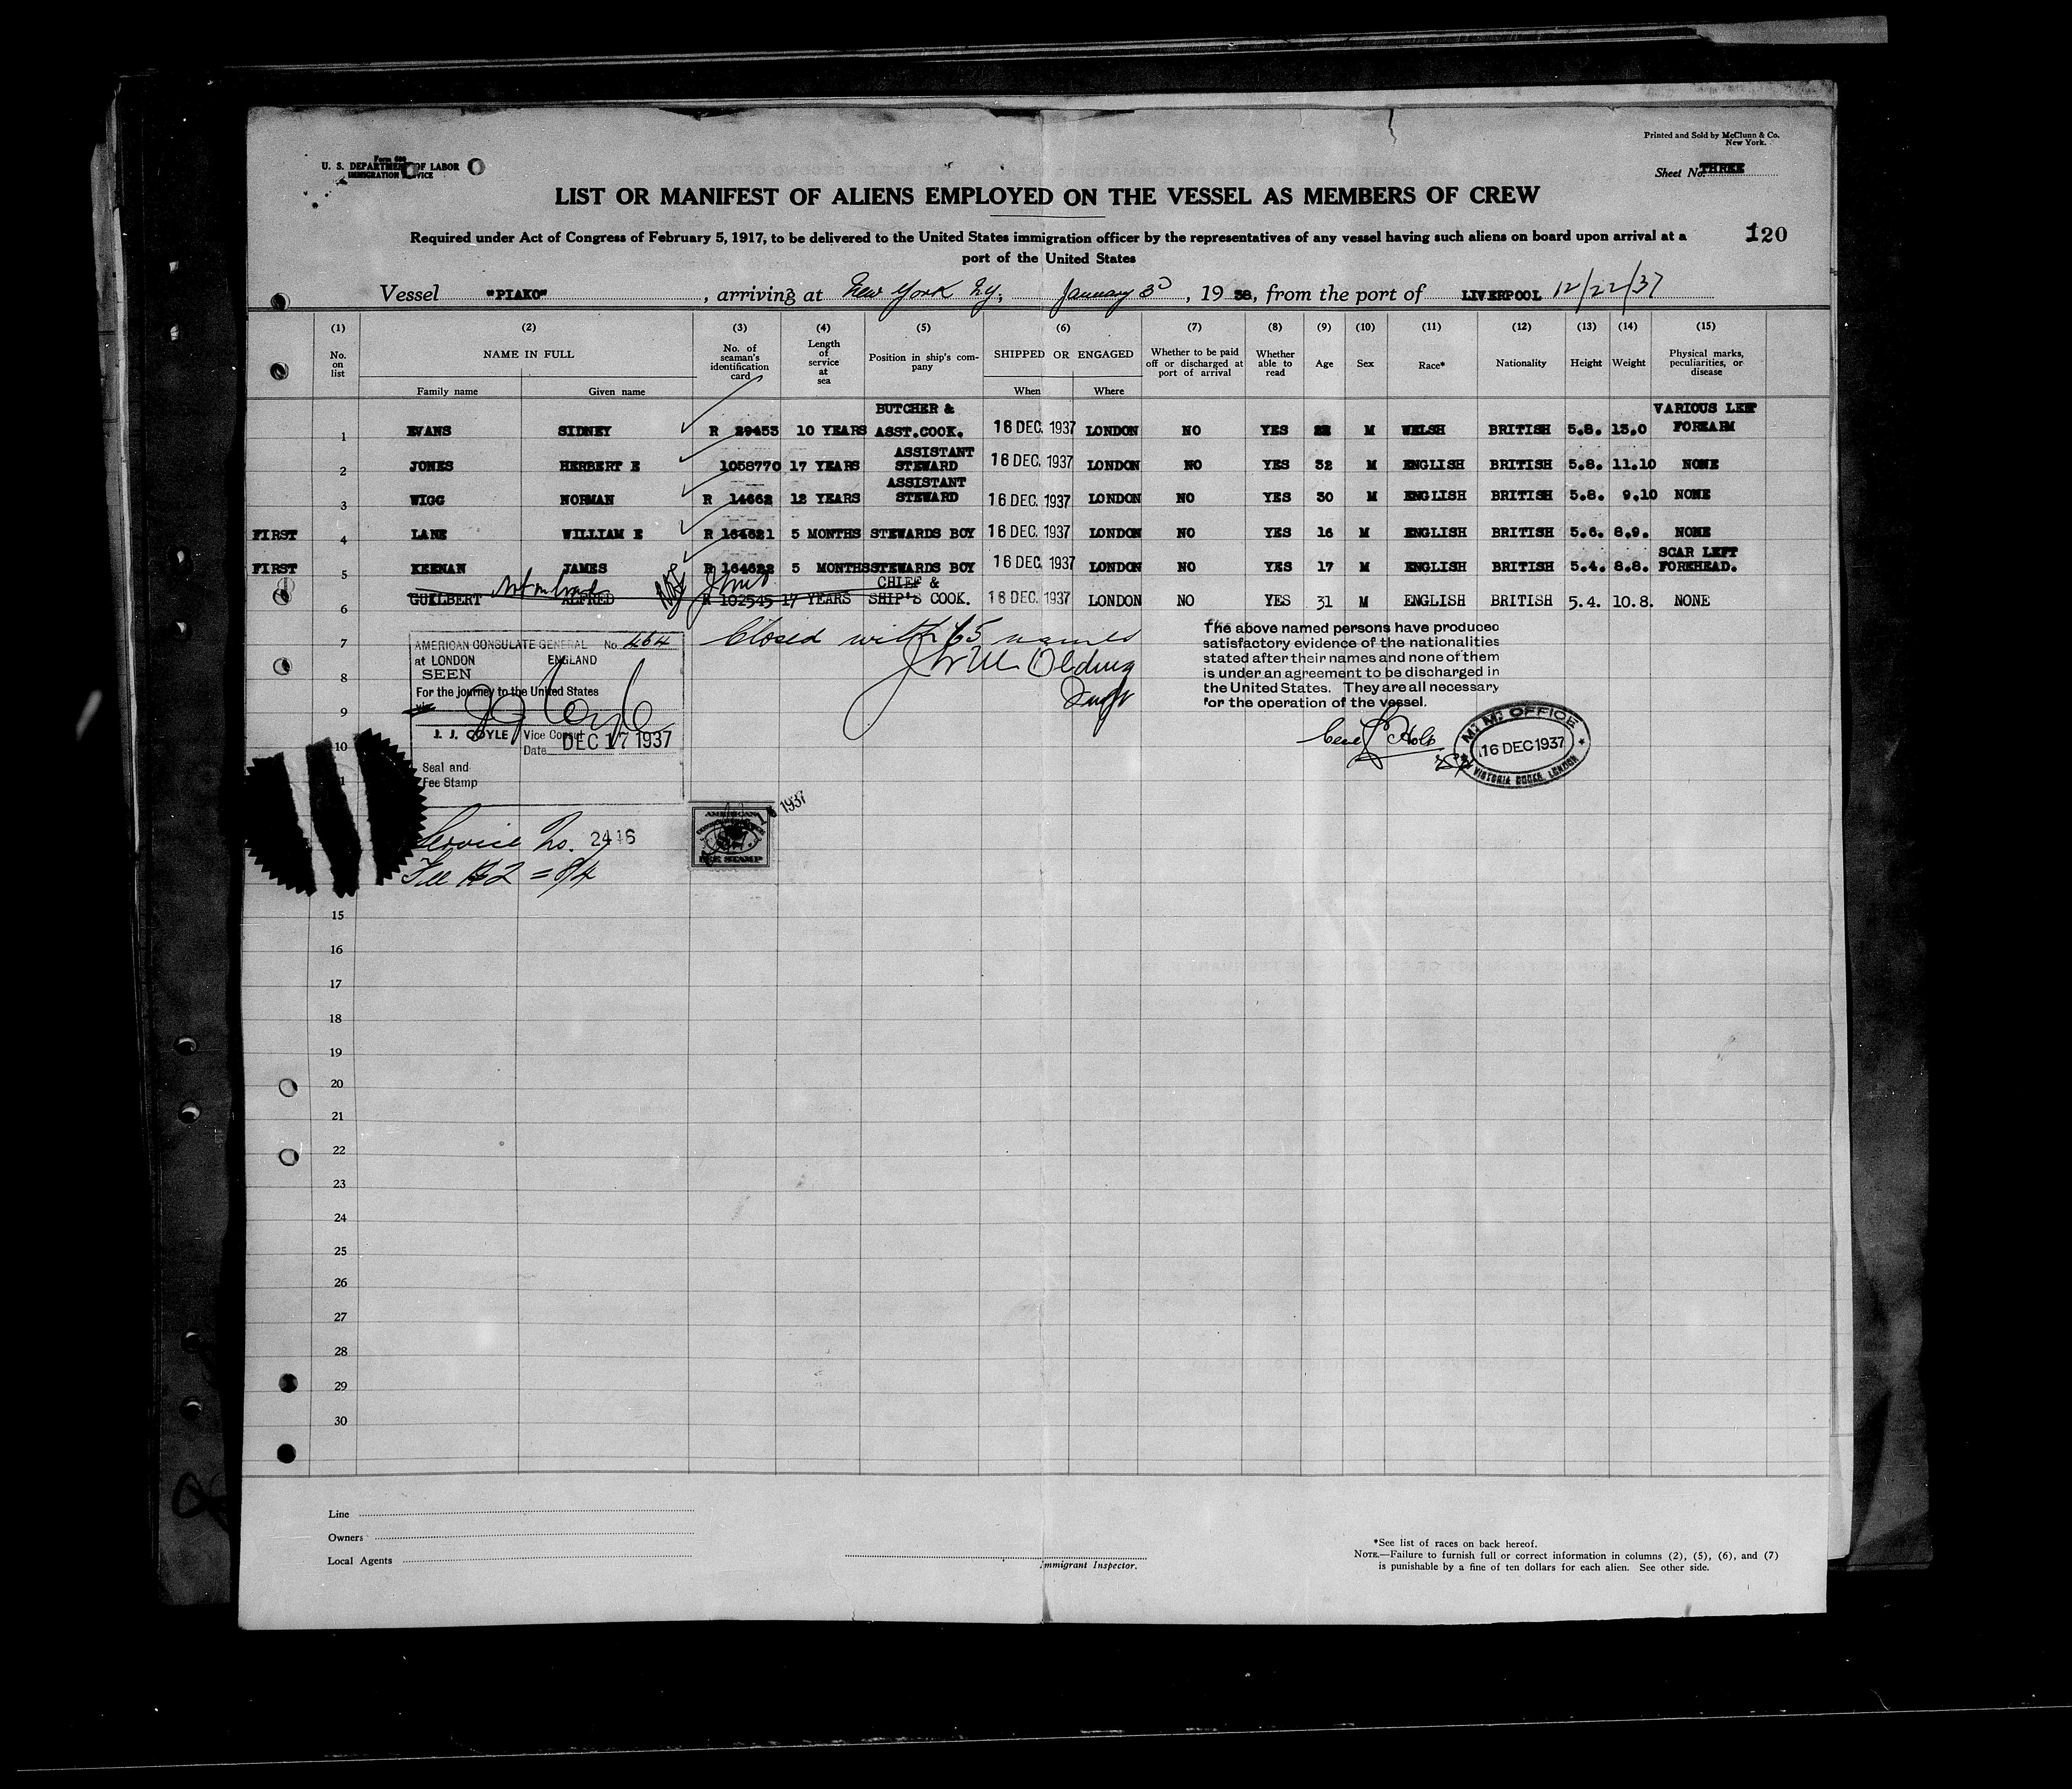 Printed and Sold by McClunn & Co.
New York.
Form 680
U. S. DEPARTMENT OF LABOR
IMMIGRATION SERVICE
Sheet No. THREE
LIST OR MANIFEST OF ALIENS EMPLOYED ON THE VESSEL AS MEMBERS OF CREW
Required under Act of Congress of February 5, 1917, to be delivered to the United States immigration officer by the representatives of any vessel having such aliens on board upon arrival at a
port of the United States
120
Vessel "PIAKO", arriving at New York N.Y., January 3D, 1938, from the port of LIVERPOOL 12/22/37
(1) (2) (3) (4) (5) (6) (7) (8) (9) (10) (11) (12) (13) (14) (15)
No. on list
NAME IN FULL
Family name Given name
No. of seaman's identification card
Length of service at sea
Position in ship's company
SHIPPED OR ENGAGED
When Where
Whether to be paid off or discharged at port of arrival
Whether able to read
Age
Sex
Race*
Nationality
Height
Weight
Physical marks, peculiarities, or disease
1 EVANS SIDNEY R 29453 10 YEARS BUTCHER & ASST.COOK. 16 DEC. 1937 LONDON NO YES M WELSH BRITISH 5.8. 13.0 VARIOUS LEFT FOREARM
2 JONES HERBERT E 1058770 17 YEARS ASSISTANT STEWARD 16 DEC. 1937 LONDON NO YES 32 M ENGLISH BRITISH 5.8. 11.10 NONE
3 WIGG NORMAN R 14662 12 YEARS ASSISTANT STEWARD 16 DEC. 1937 LONDON NO YES 30 M ENGLISH BRITISH 5.8. 9.10 NONE
FIRST 4 LANE WILLIAM E R 164621 5 MONTHS STEWARDS BOY 16 DEC. 1937 LONDON NO YES 16 M ENGLISH BRITISH 5.6. 8.9. NONE
FIRST 5 KEENAN JAMES R 164622 5 MONTHS STEWARDS BOY 16 DEC. 1937 LONDON NO YES 17 M ENGLISH BRITISH 5.4. 8.8. SCAR LEFT FOREHEAD.
Not on board
6 GUILBERT ALFRED R 102545 17 YEARS CHIEF & SHIP'S COOK. 16 DEC. 1937 LONDON NO YES 31 M ENGLISH BRITISH 5.4. 10.8. NONE
7
8
9
10
AMERICAN CONSULATE GENERAL No. 464
at LONDON ENGLAND
SEEN
For the journey to the United States
J. J. COYLE Vice Consul
Date DEC 17 1937
Seal and
Fee Stamp
Closed with 65 names
The above named persons have produced
satisfactory evidence of the nationalities
stated after their names and none of them
is under an agreement to be discharged in
the United States. They are all necessary
for the operation of the vessel.
M. M. OFFICE
16 DEC 1937
VICTORIA DOCKS, LONDON
Service No. 2416
Fee $2 = 8/4
AMERICAN
FEE STAMP
1937
15
16
17
18
19
20
21
22
23
24
25
26
27
28
29
30
Line
Owners
Local Agents
Immigrant Inspector.
*See list of races on back hereof.
NOTE.—Failure to furnish full or correct information in columns (2), (5), (6), and (7)
is punishable by a fine of ten dollars for each alien. See other side.